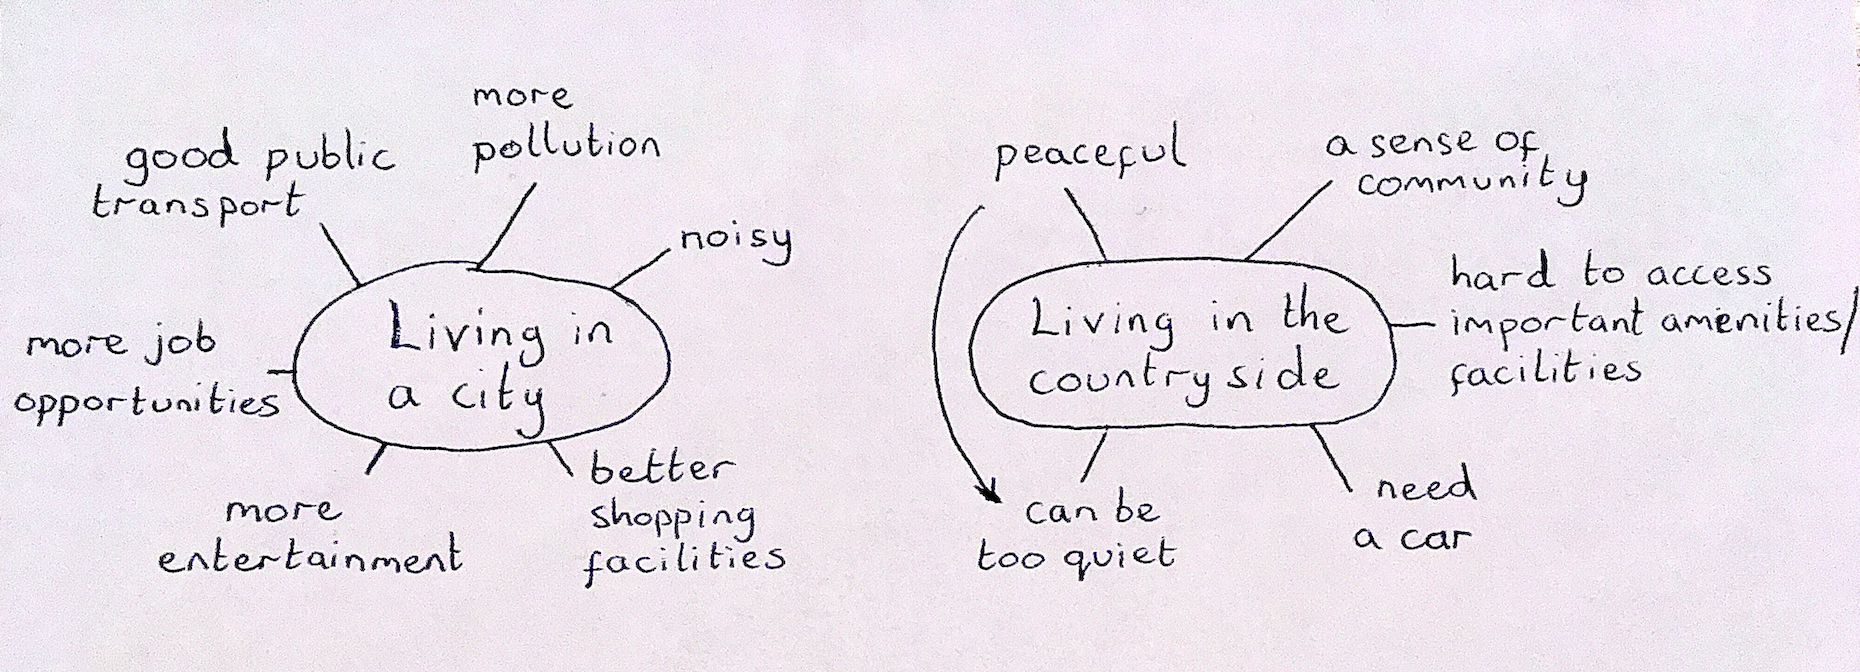 more
pollution
good public
transport
noisy
more job
opportunities
Living in
a city
more
entertainment
better
shopping
facilities
peaceful
a sense of
community
hard to access
important amenities/
facilities
Living in the
countryside
can be
too quiet
need
a car